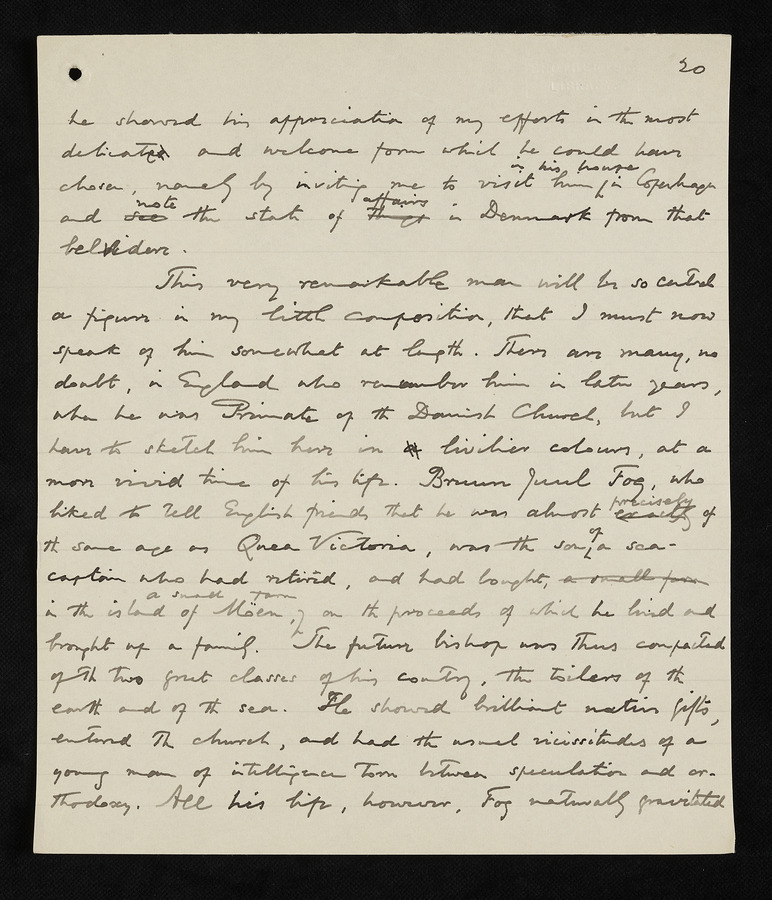 20
he showed his appreciation of my efforts in the most
delicate and welcome form which he could have
in his house
chosen, namely by inviting me to visit him in Copenhagen
note affairs
and see the state of things in Denmark from that
belvidere.
This very remarkable man will be so central
a figure in my little composition, that I must now
speak of him somewhat at length. There are many, no
doubt, in England who remember him in later years,
when he was Primate of the Danish Church, but I
have to sketch him here in livelier colours, at a
more vivid time of his life. Bruun Juul Fog, who
precisely
liked to tell English friends that he was almost exactly of
of
the same age as Queen Victoria, was the son a sea-
captain who had retired, and had bought, a small farm
a small farm
in the island of Möen, on the proceeds of which he lived and
brought up a family. The future bishop was thus compacted
of the two great classes of his country, the toilers of the
earth and of the sea. He showed brilliant native gifts,
entered the church, and had the usual vicissitudes of a
young man of intelligence torn between speculation and or-
thodoxy. All his life, however, Fog naturally gravitated